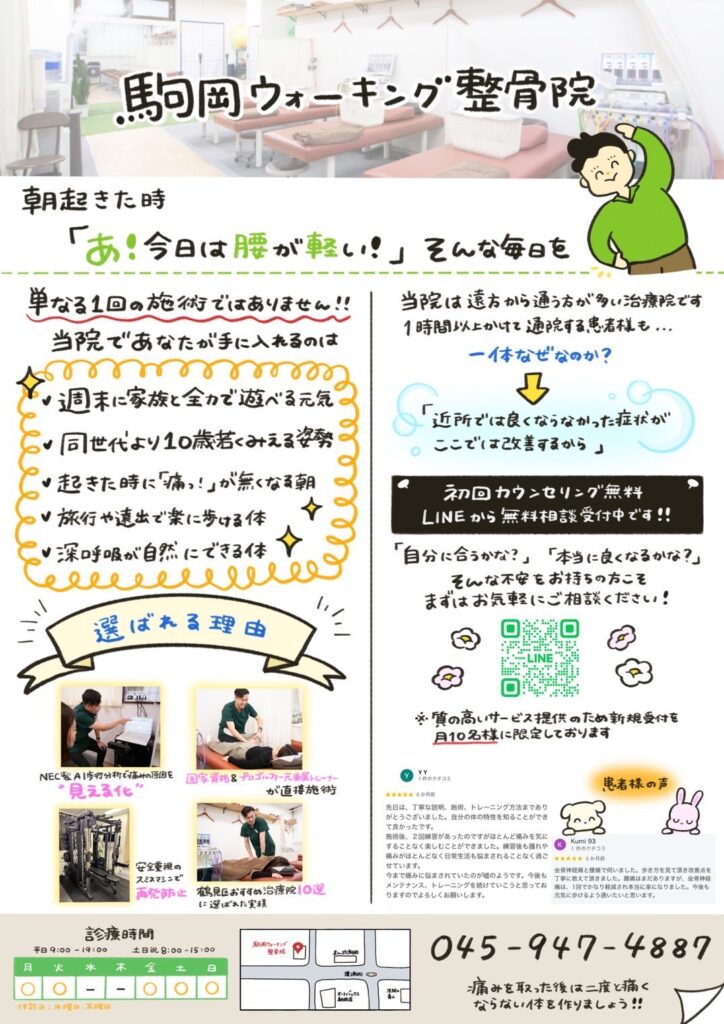 駒岡ウォーキング整骨院
朝起きた時
「あ!今日は腰が軽い!」そんな毎日を
単なる1回の施術ではありません!!
当院であなたが手に入れるのは
✓ 週末に家族と全力で遊べる元気
✓ 同世代より10歳若くみえる姿勢
✓ 起きた時に「痛っ!」が無くなる朝
✓ 旅行や遠出で楽に歩ける体
✓ 深呼吸が自然にできる体
選ばれる理由
NEC製AI歩行分析で痛みの原因を
"見える化"
国家資格&プロゴルファー元専属トレーナー
が直接施術
安全重視の
スミスマシンで
再発防止
鶴見区おすすめ治療院10選
に選ばれた実績
当院は遠方から通う方が多い治療院です
1時間以上かけて通院する患者様も...
一体なぜなのか?
「近所では良くならなかった症状が
ここでは改善するから」
初回カウンセリング無料
LINEから無料相談受付中です!!
「自分に合うかな?」「本当に良くなるかな?」
そんな不安をお持ちの方こそ
まずはお気軽にご相談ください!
LINE
※質の高いサービス提供のため新規受付を
月10名様に限定しております
患者様の声
Y
Y Y
1 件のクチコミ
★★★★★ 6 か月前
先日は、丁寧な説明、施術、トレーニング方法までありがとうございました。自分の体の特性を知ることができて良かったです。
施術後、2回練習があったのですがほとんど痛みを気にすることなく楽しむことができました。練習後も腫れや痛みがほとんどなく日常生活も悩まされることなく過ごせています。
今まで痛みに悩まされていたのが嘘のようです。今後もメンテナンス、トレーニングを続けていこうと思っておりますのでよろしくお願いします。
K
Kumi 93
1 件のクチコミ
★★★★★ 5 か月前
坐骨神経痛と腰痛で伺いました。歩き方を見て頂き改善点を丁寧に教えて頂きました。腰痛はまだありますが、坐骨神経痛は、1回でかなり軽減され本当に楽になりました。今後も元気に歩けるよう通いたいと思います。
診療時間
平日9:00-19:00 土日祝8:00-15:00
月 火 水 木 金 土 日
○ ○ − − ○ ○ ○
休診日:水曜日・木曜日
駒岡ウォーキング
整骨院
オートバックス
045-947-4887
痛みを取った後は二度と痛く
ならない体を作りましょう!!